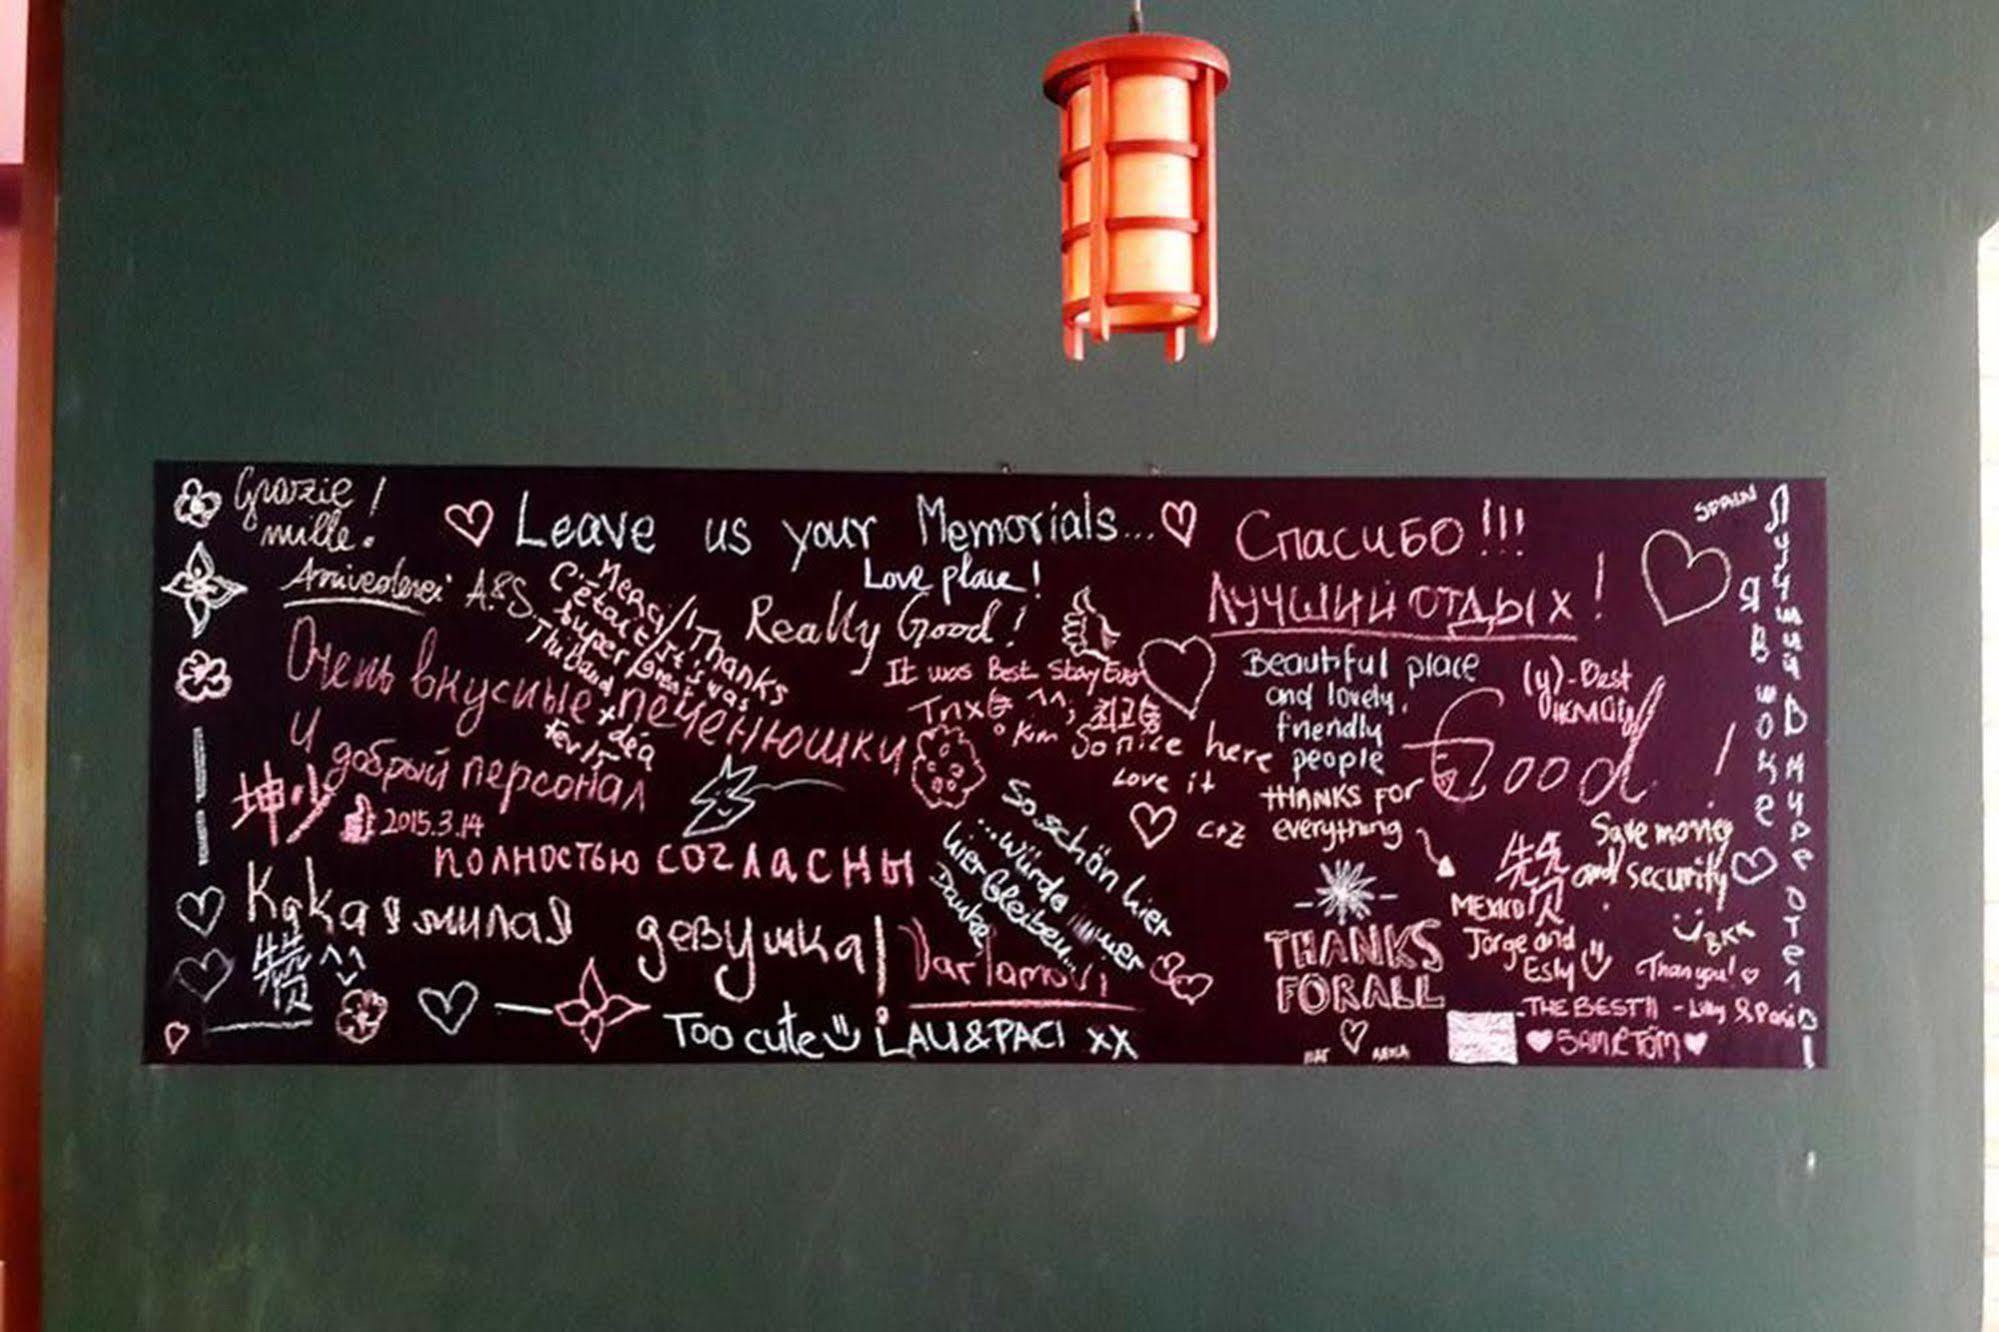 Grazie!
mille.
Arrivederci A&S
Leave us your Memorials...
Love place!
Really Good!
Merci/Thanks
C'était
super
Очень вкусные печенюшки
и
добрый персонал
2015.3.14
полностью согласны
Какая милая девушка!
Too cute LAU&PACI xx
It was Best Stay Ever
Tnx ^^; 최고
Kim
So nice here
Love it
C+Z
So schön hier
...würde immer
hier bleiben...
Danke
Varlamovi
Спасибо!!!
ЛУЧШИЙ ОТДЫХ!
Beautiful place
and lovely,
friendly
people
THANKS FOR
everything
THANKS
FOR ALL
(y)-Best
Good!
Save money
and security
BKK
MEXICO
Jorge and
Esly
Thank you!
THE BEST!! - Lilly & Paci
SAM & TOM
SPAIN
Я в шоке
Лучший в мире отель!